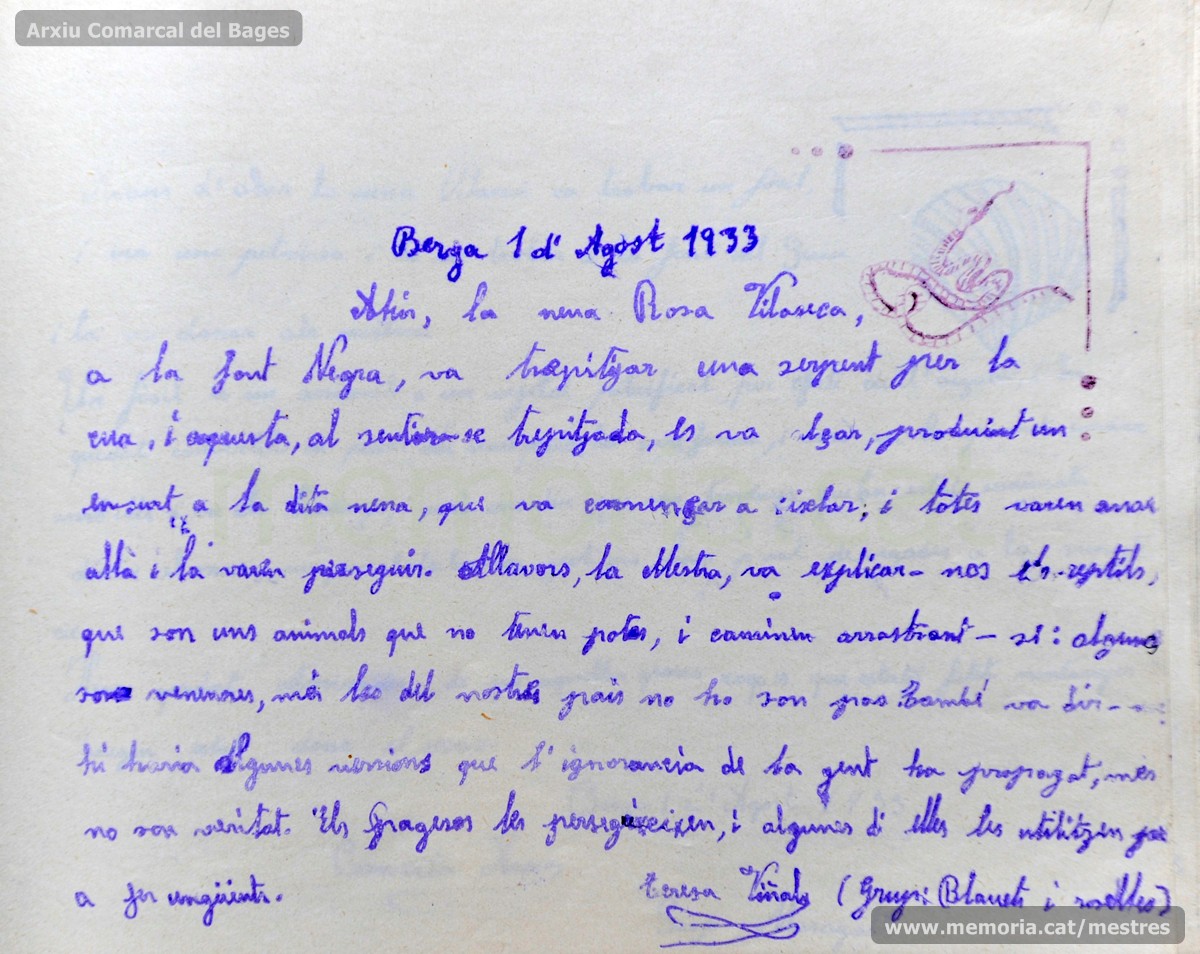 Arxiu Comarcal del Bages
Berga 1 d' Agost 1933
Ahir, la nena Rosa Vilaseca,
a la font Negra, va trepitjar una serpent per la
cua, i aquesta, al sentir-se trepitjada, es va alçar, produint un
ensurt a la dita nena, que va començar a xisclar; i totes varen anar
allà i la varen perseguir. Allavors, la Mestra, va explicar-nos els reptils,
que son uns animals que no tenen potes, i caminen arrastrant-se: algunes
son venenoses, més les del nostre pais no ho son pas. També va dir-
hi havia algunes versions que l'ignorancia de la gent ha propagat, mes
no son veritat. Els pagesos les persegueixen, i algunes d'elles les utilitzen per
a fer ungüents.
teresa Viñals (Grup: Blauets i roselles)
memoria.cat
www.memoria.cat/mestres